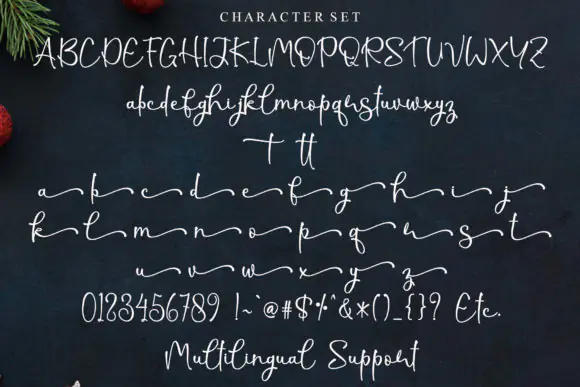 CHARACTER SET
ABCDEFGHIJKLMNOPQRSTUVWXYZ
abcdefghijklmnopqrstuvwxyz
t tt
a b c d e f g h i j
k l m n o p q r s t
u v w x y z
0123456789 !~`@#$%^&*()_{}? Etc.
Multilingual Support